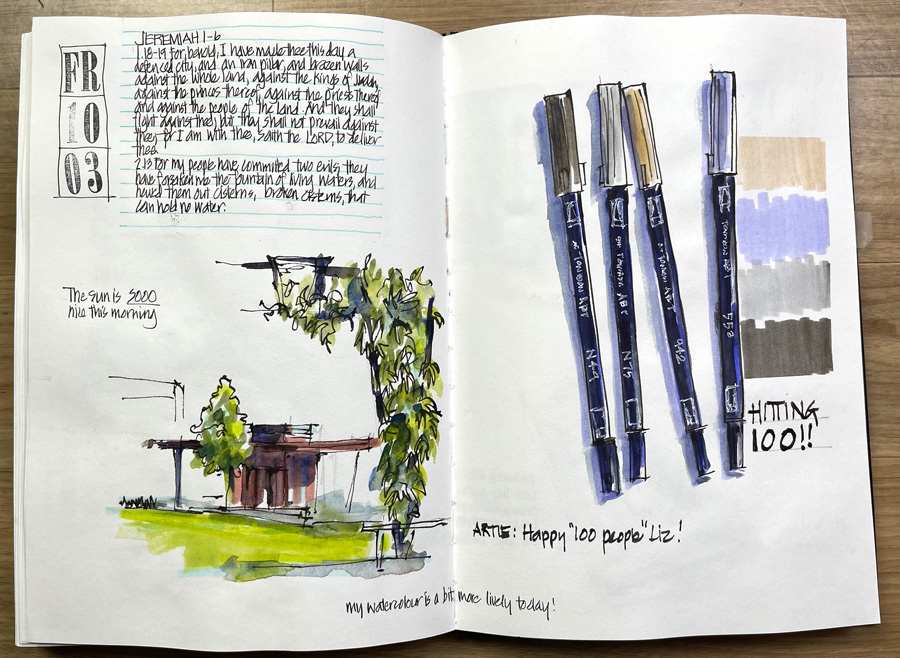 FR
10
03
JEREMIAH 1-6
1.18-19 for, behold, I have made thee this day a
defenced city, and an iron pillar, and brazen walls
against the whole land, against the kings of Judah,
against the princes thereof, against the priests thereof
and against the people of the land. And they shall
fight against thee; but they shall not prevail against
thee; for I am with thee, saith the LORD, to deliver
thee.
2.13 For my people have committed two evils; they
have forsaken me the fountain of living waters, and
hewed them out cisterns, broken cisterns, that
can hold no water.
The sun is SOOO
nice this morning
TOMBOW ABT N49
TOMBOW ABT N75
TOMBOW ABT 942
TOMBOW ABT 553
HITTING
100!!
ARTIE: Happy "100 people" Liz!
my watercolour is a bit more lively today!